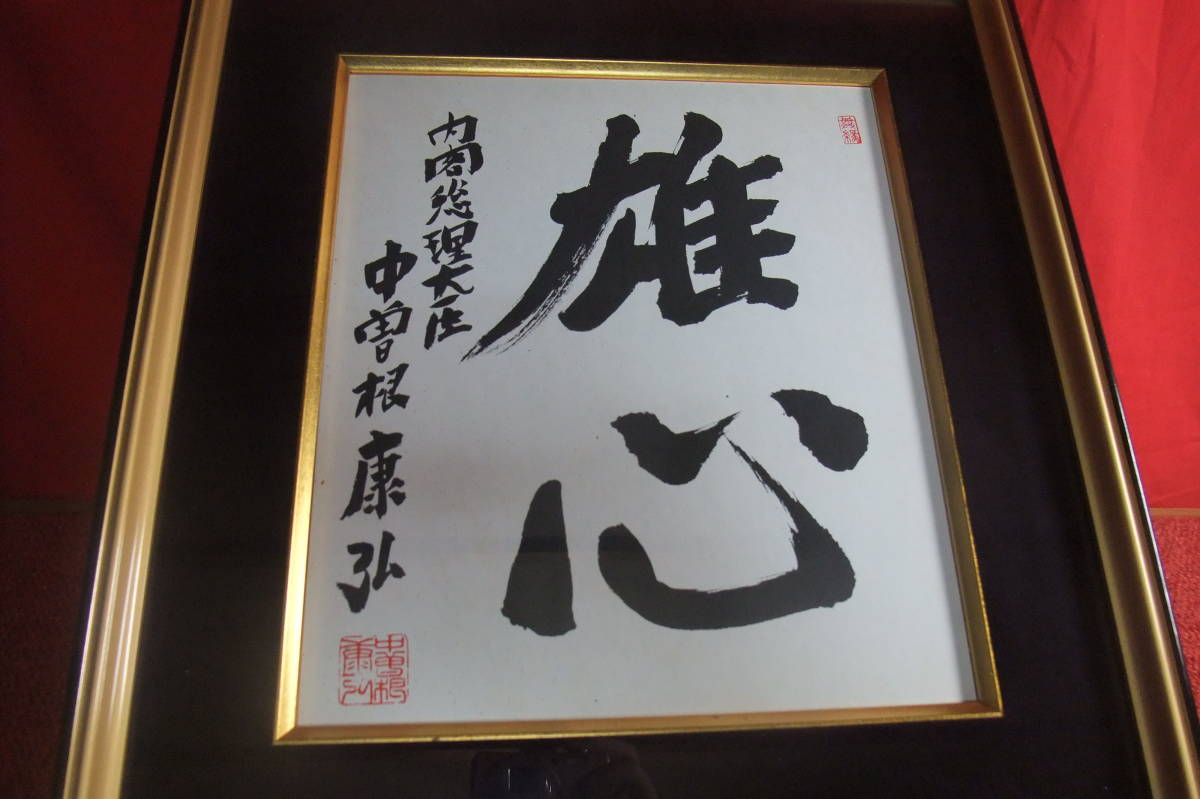 雄心
内閣総理大臣
中曽根康弘
中曽根康弘